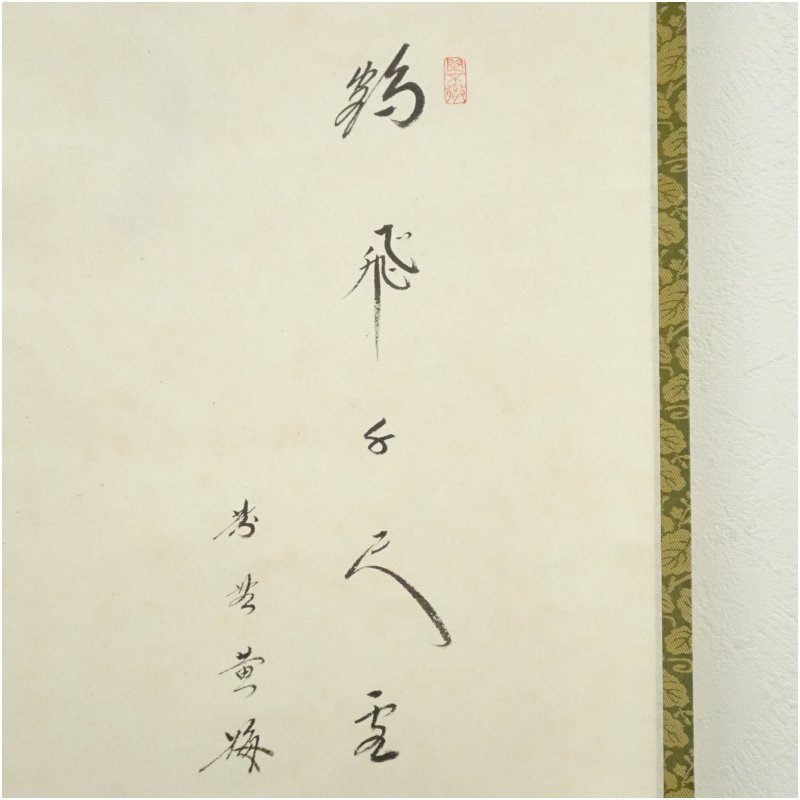 鶴飛千尺雪
黄梅